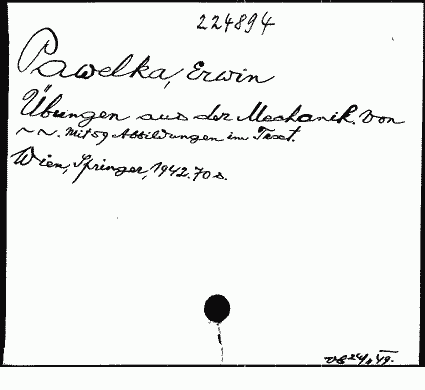 224894
Pawelka, Erwin
Übungen aus der Mechanik. Von
~ ~. Mit 59 Abbildungen im Text.
Wien, Springer, 1942. 70 s.